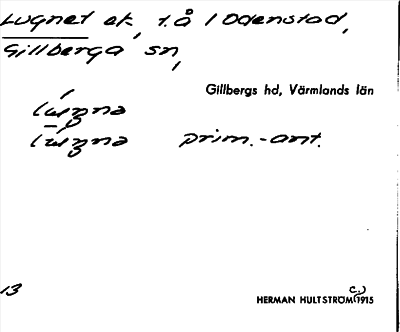 Lugnet ek, t. å 1 Odenstad,
Gillberga sn,
Gillbergs hd, Värmlands län
prim.-ant.
13
c.)
HERMAN HULTSTRÖM 1915